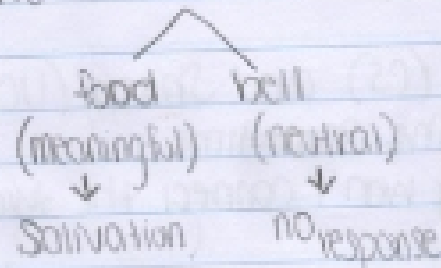 food bell
(meaningful) (neutral)
↓ ↓
Salivation no response